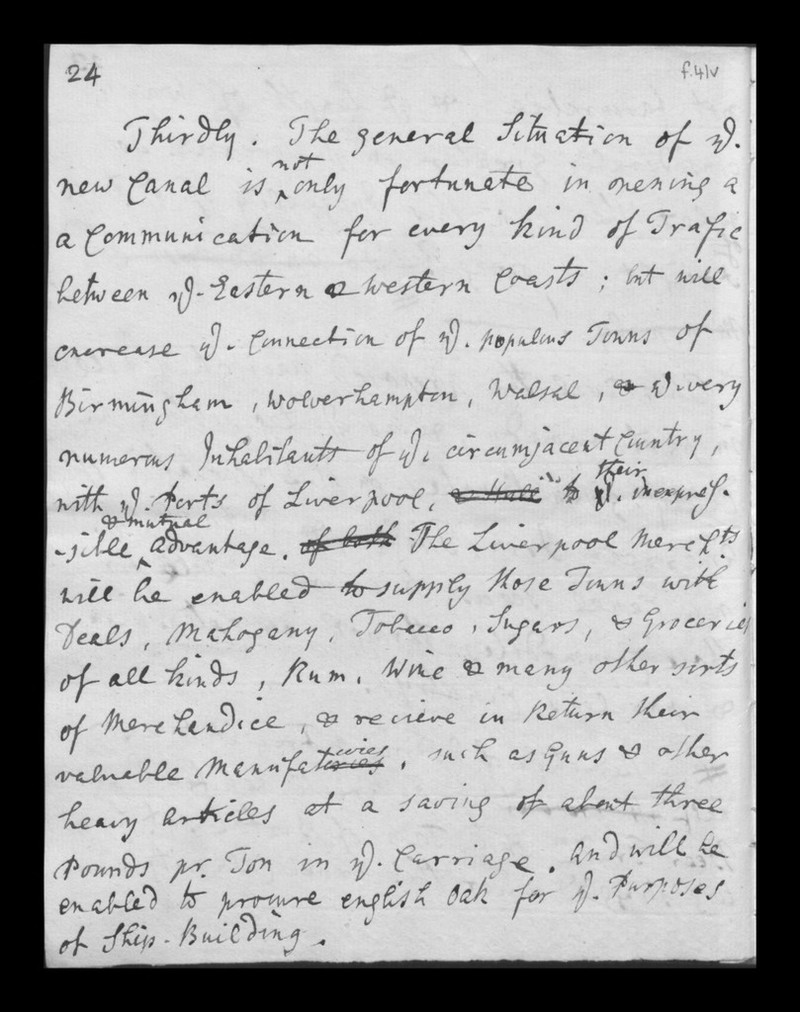 24
f.41v
Thirdly. The general Situation of yᵉ.
new Canal is not only fortunate in opening a
a Communication for every kind of Trafic
between yᵉ. Eastern & western Coasts; but will
encrease yᵉ. Connection of yᵉ. populous Towns of
Birmingham, wolverhampton, Walsal, & yᵉ. very
numerous Inhabitants of yᵉ. circumjacent Country,
with yᵉ. Ports of Liverpool, & Hull to their yᵉ. inexpres-
-sible & mutual advantage. of both The Liverpool Merchts
will be enabled to supply those Towns with
Deals, Mahogany, Tobacco, Sugars, & Groceries
of all kinds, Rum, Wine & many other sorts
of Merchandice, & recieve in Return their
valuable Manufaturies, such as Guns & other
heavy articles at a saving of about three
Pounds pr. Ton in yᵉ. Carriage. and will be
enabled to procure english Oak for yᵉ. Purposes
of Ship-Building.